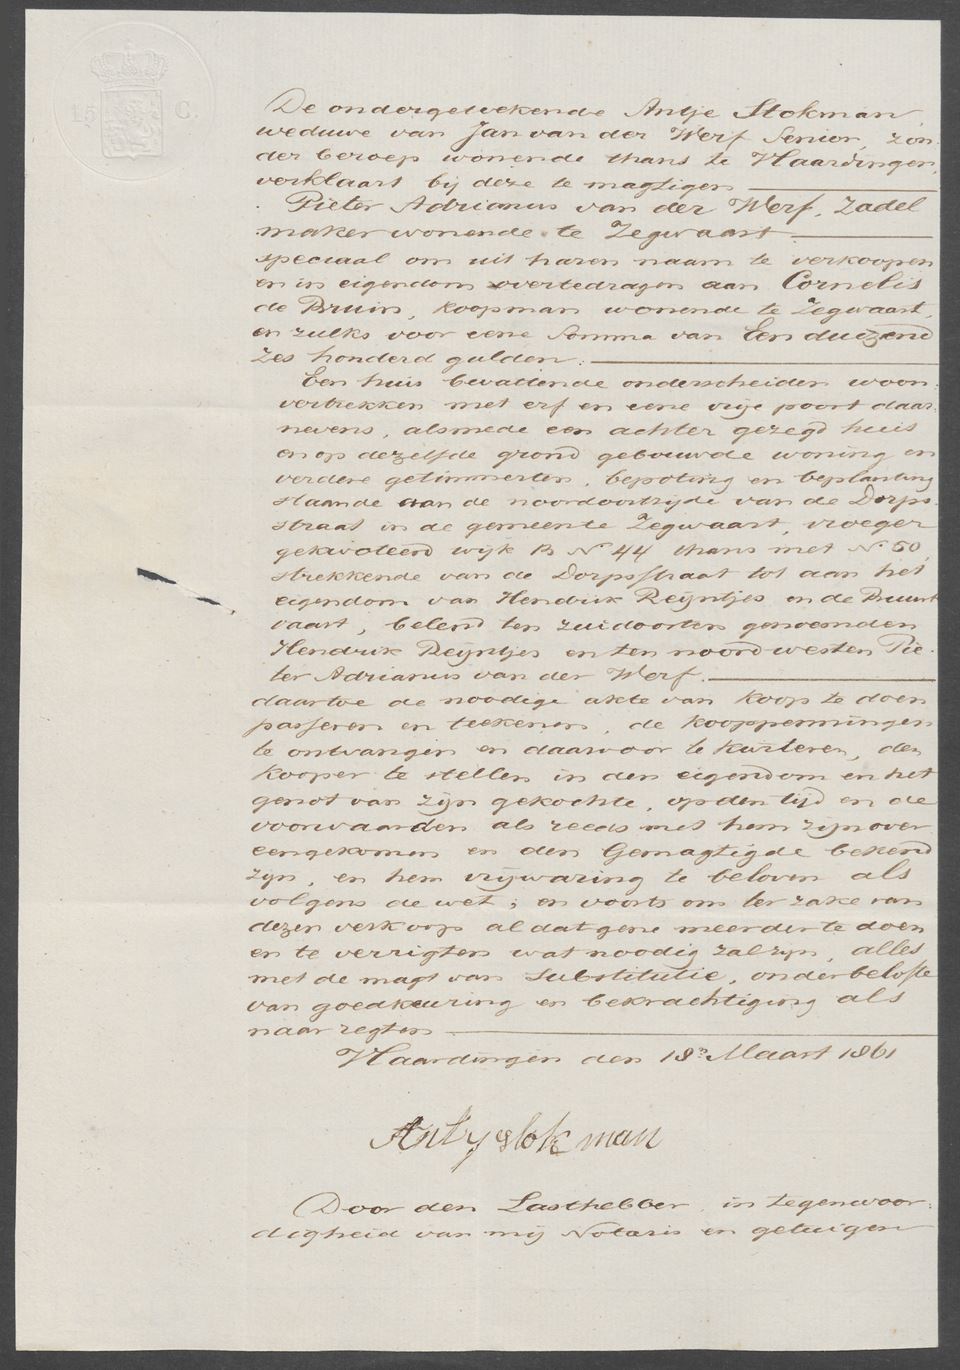 15 C.
De ondergetekende Antje Stokman,
weduwe van Jan van der Werf Senior, zon-
der beroep wonende thans te Vlaardingen,
verklaart bij deze te magtigen
Pieter Adrianus van der Werf, Zadel
maker wonende te Zegwaart
speciaal om uit haren naam te verkoopen
en in eigendom overtedragen aan Cornelis
de Bruin, koopman wonende te Zegwaart,
en zulks voor eene Somma van Een duizend
zes honderd gulden:
Een huis bevattende onderscheiden woon-
vertrekken met erf en eene vrije poort daar-
nevens, alsmede een achter gezegd huis
en op dezelfde grond gebouwde woning en
verdere getimmerten, bepoting en beplanting
staande aan de noordoostzijde van de Dorps-
straat in de gemeente Zegwaart, vroeger
gekwoteerd wijk B No 44 thans met No 50,
strekkende van de Dorpsstraat tot aan het
eigendom van Hendrik Reijntjes en de Buurt
vaart, belend ten zuidoosten genoemden
Hendrik Reijntjes en ten noordwesten Pie-
ter Adrianus van der Werf.
daartoe de noodige akte van koop te doen
passeren en teekenen, de kooppenningen
te ontvangen en daarvoor te kwiteren, den
kooper te stellen in den eigendom en het
genot van zijn gekochte, op den tijd en de
voorwaarden als reeds met hem zijn over
eengekomen en den Gemagtigde bekend
zijn, en hem vrijwaring te beloven als
volgens de wet; en voorts om ter zake van
dezen verkoop al datgene meerder te doen
en te verrigten wat noodig zal zijn, alles
met de magt van substitutie, onder belofte
van goedkeuring en bekrachtiging als
naar regten
Vlaardingen den 18n Maart 1861
Antje Stokman
Door den Lasthebber, in tegenwoor-
digheid van mij Notaris en getuigen